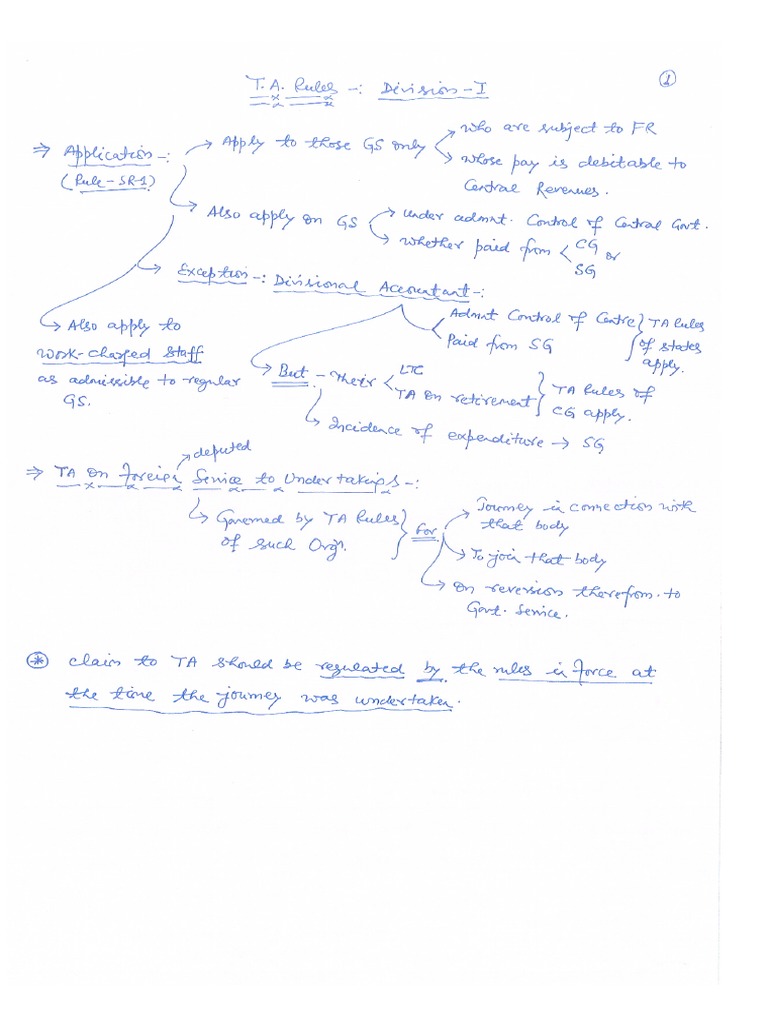 1
T. A. Rules -: Division - I
⇒ Application -:
(Rule - SR-1)
→ Apply to those GS only
→ who are subject to FR
→ whose pay is debitable to
Central Revenues.
→ Also apply on GS
→ under admnt. Control of Central Govt.
→ whether paid from < CG or
SG
→ Exception -: Divisional Accountant -:
Admnt Control of Centre
Paid from SG
} TA Rules
of states
apply.
→ Also apply to
work-charged staff
as admissible to regular
GS.
→ But - Their < LTC
TA on retirement
} TA Rules of
CG apply.
→ Incidence of expenditure → SG
→ deputed
⇒ TA on foreign Service to Undertakings -:
→ Governed by TA Rules
of such Orgn.
} For
→ Journey in connection with
that body
→ To join that body
→ On reversion therefrom to
Govt. Service.
* claim to TA should be regulated by the rules in force at
the time the journey was undertaken.